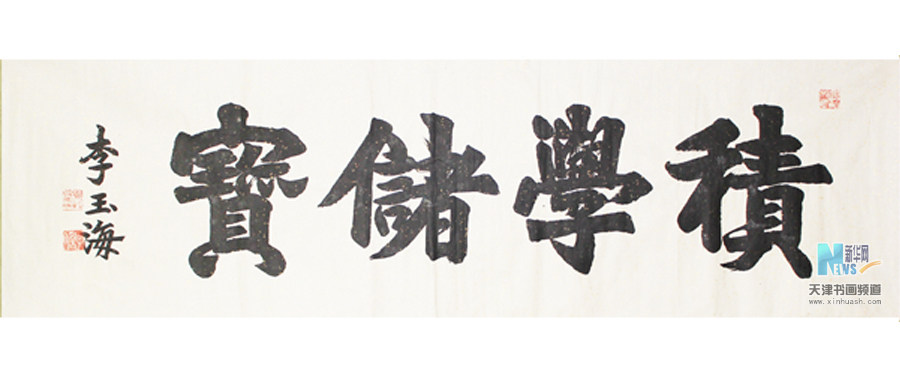 積學儲寶
李玉海
新华网
NEWS
天津书画频道
www.xinhuash.com